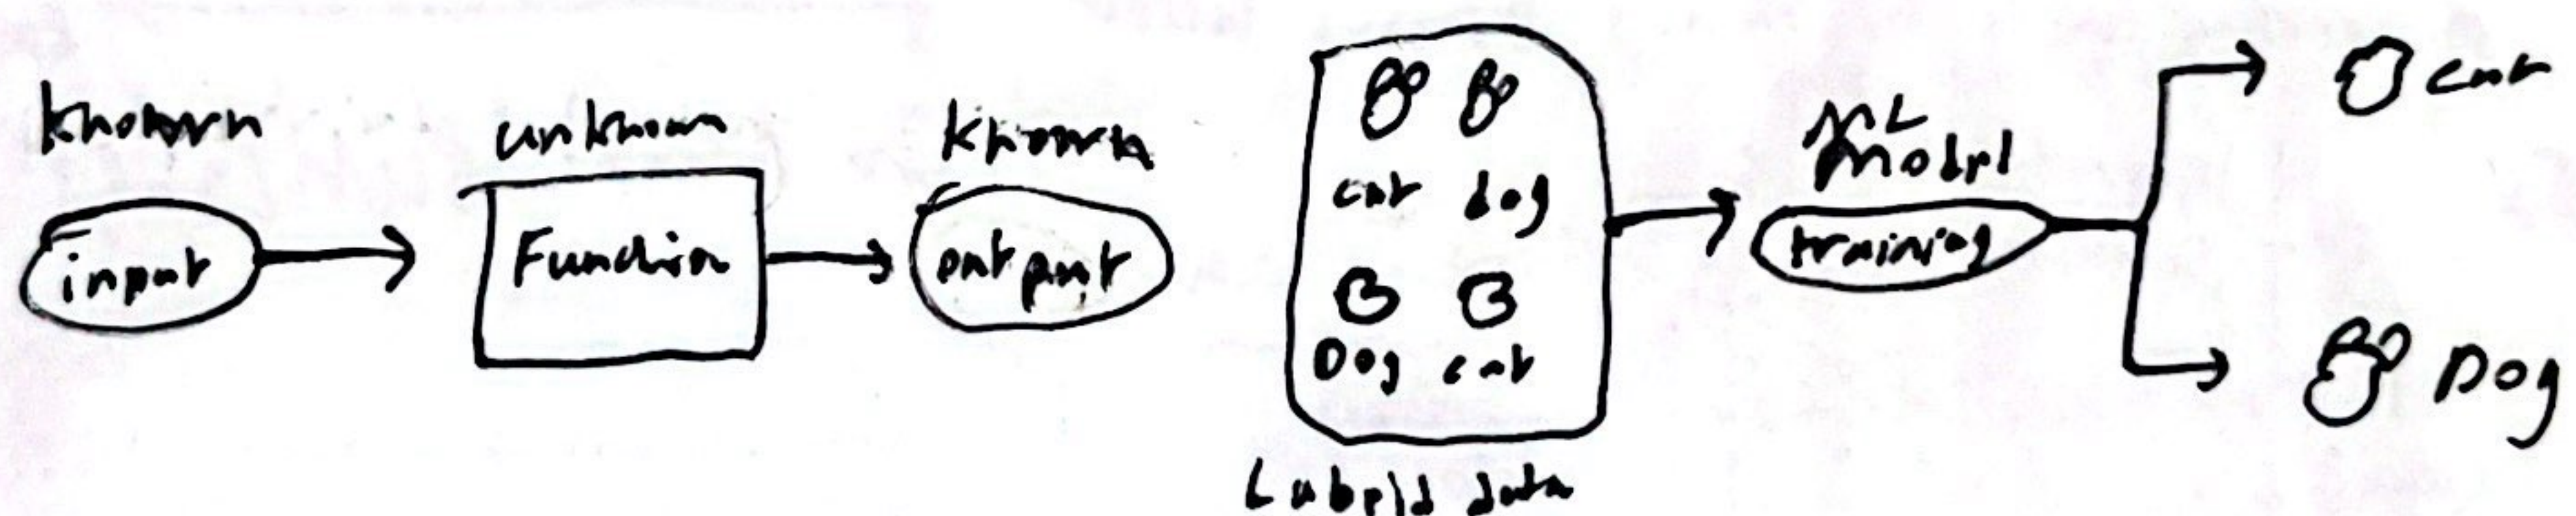 Known
unknown
Known
input
Function
output
cat dog
Dog cat
Labeld data
ML
Model
training
cat
Dog